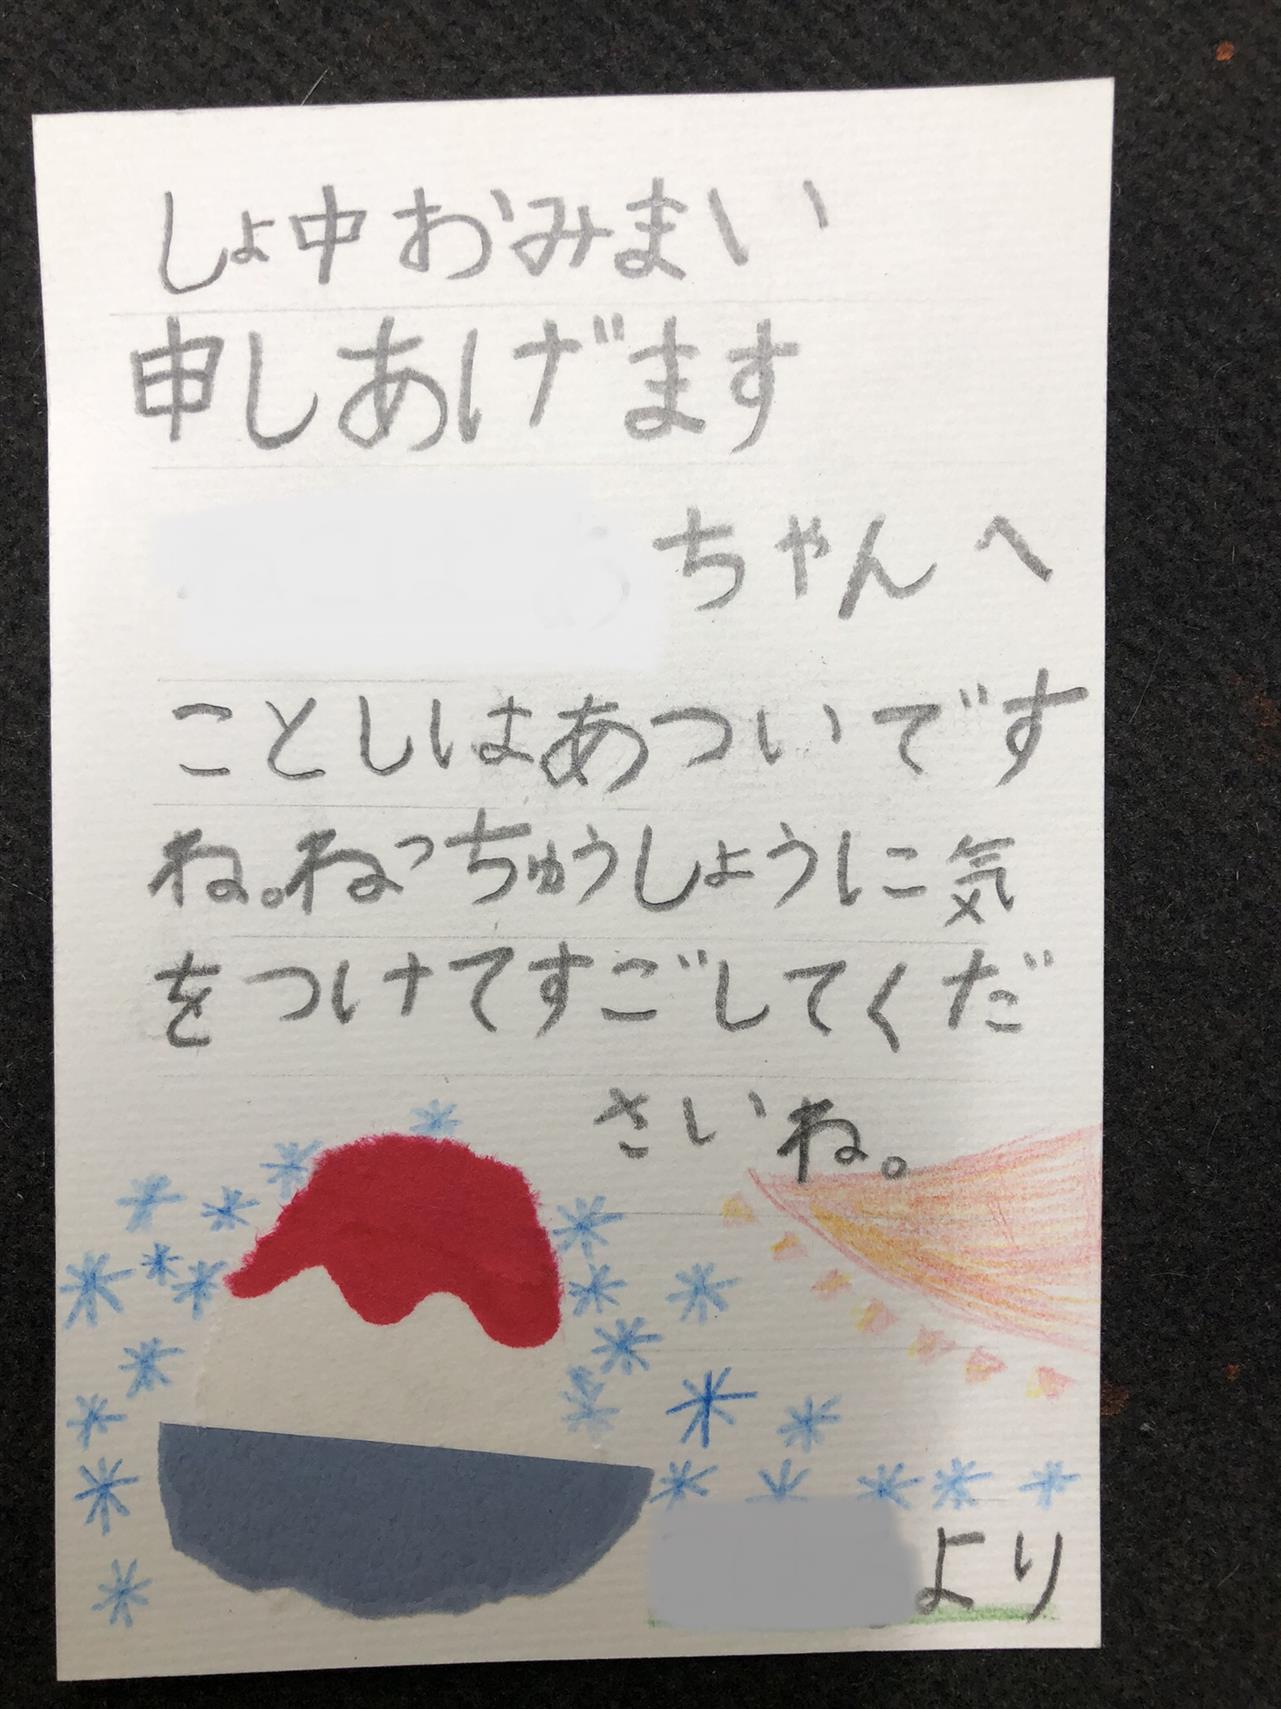 しょ中おみまい
申しあげます
ちゃんへ
ことしはあついです
ね。ねっちゅうしょうに気
をつけてすごしてくだ
さいね。
より